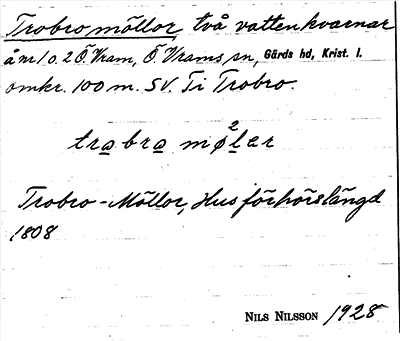 Trobro möllor, två vattenkvarnar
å nr 1 o. 2 Ö. Vram, Ö. Vrams sn, Gärds hd, Krist. l.
omkr. 100 m. SV. Ti Trobro.
trabra møler
2
Trobro-Möllor, Husförhörslängd
1808
NILS NILSSON 1928